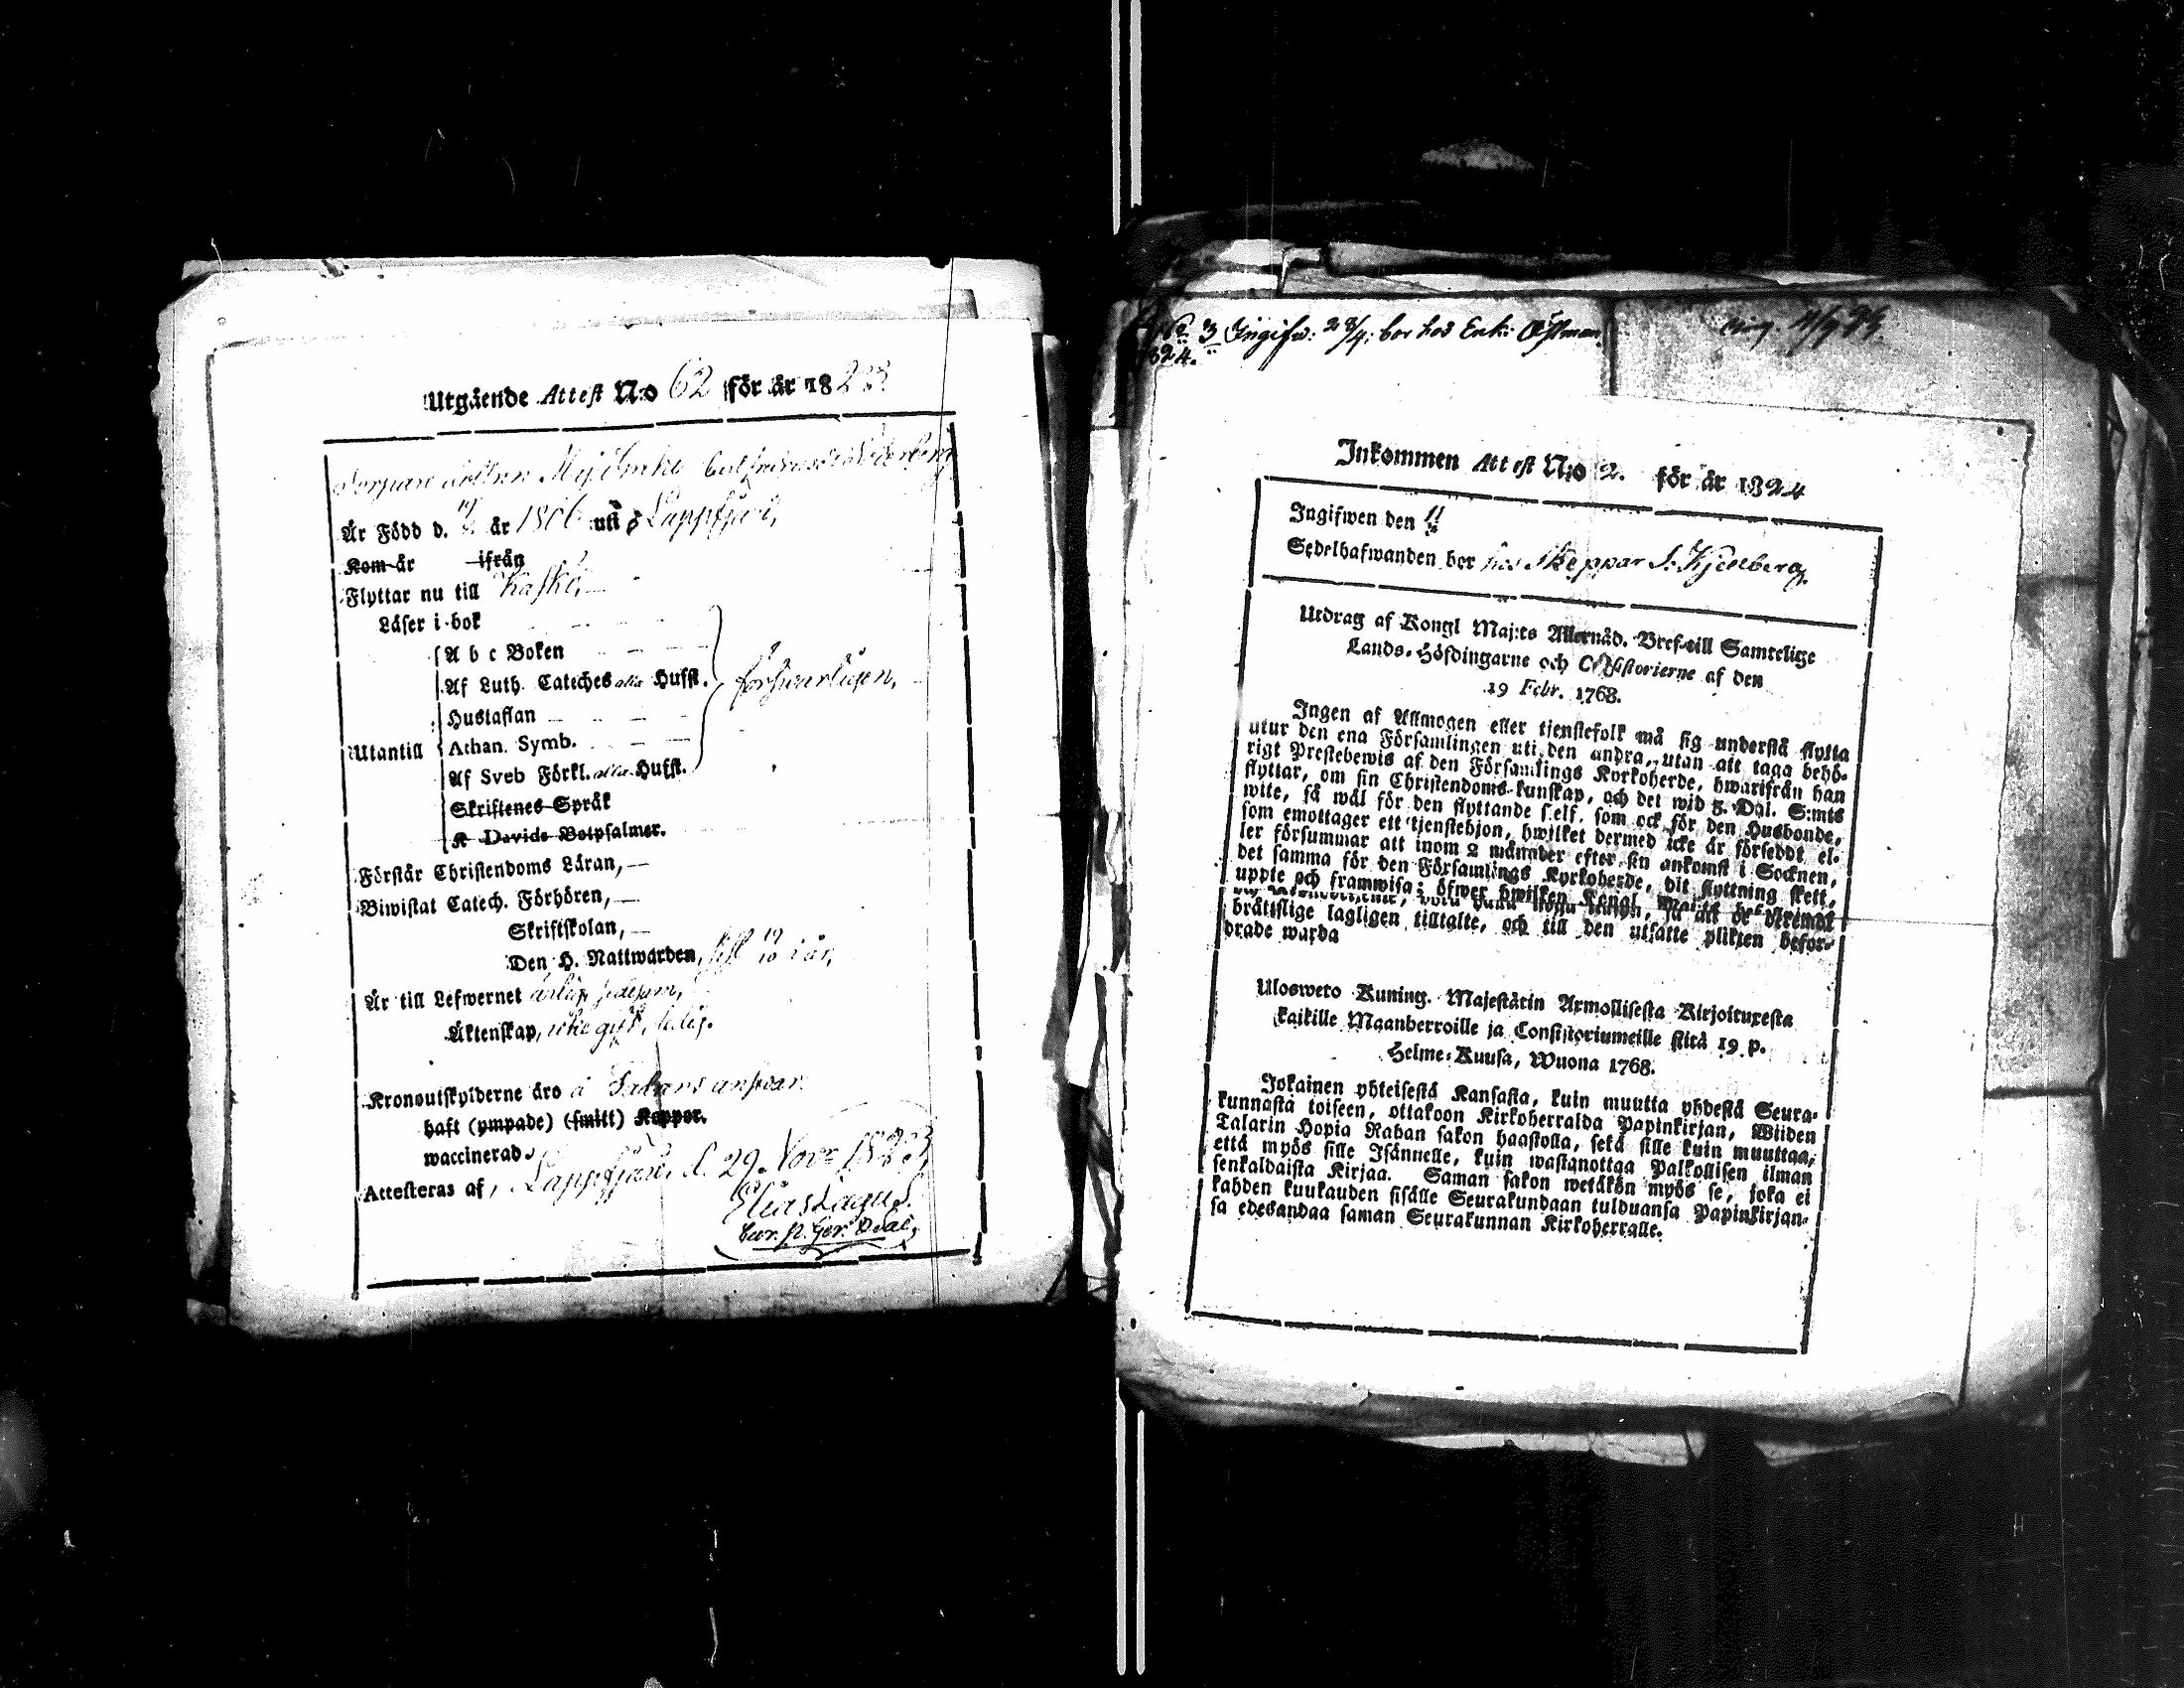 Utgående Attest N:o 62 för år 1823
År Född d. 19 år 1806 uti Lappfjerd,
Kom år ifrån
Flyttar nu till Kaskö,
Läser i bok
A b c Boken
Af Luth. Cateches alla Hufst. försvarligen,
Hustaflan
Utantill Athan. Symb.
Af Sveb Förkl. alla Hufst.
Skriftenes Språk
K Davids Botpsalmer.
Förstår Christendoms Läran,
Biwistat Catech. Förhören,
Skriftskolan,
Den H. Nattwarden, 19/10 i år,
År till Lefwernet ärlig
Äktenskap, icke gift, ledig.
Kronoutskylderne äro å Fadrens ansvar
haft (ympade) (smitt) Koppor.
waccinerad
Attesteras af, Lappfjerd, d. 29 Nov: 1823
Elias Lagus.
N:o 3 Ingifw: 28/4; bor hos Enk: Östman.
1824.
Inkommen Attest N:o 2. för år 1824
Ingifwen den 11
Sedelhafwanden bor hos Skeppar S. Kjellberg.
Utdrag af Kongl Maj:ts Allernåd. Bref till Samtelige
Lands-Höfdingarne och Consistorierne af den
19 Febr. 1768.
Ingen af Allmogen eller tjenstefolk må sig understå flytta
utur den ena Församlingen uti den andra, utan att taga behö-
rigt Prestebewis af den Församlings Kyrkoherde, hwarifrån han
flyttar, om sin Christendoms-kunskap, och det wid 5. Dal. S:mts
wite, så wäl för den flyttande self, som ock för den Husbonde,
som emottager ett tjenstehjon, hwilket dermed icke är försedt el-
ler försummar att inom 2 månader efter sin ankomst i Socknen,
det samma för den Församlings Kyrkoherde, dit flyttning skett,
uppte och framwisa; öfwer hwilken Kongl Maj:ts
bråttslige lagligen tilltalte, och till den utsatte plikten befor-
drade warda
Ulosweto Kuning. Majestätin Armollisesta Kirjoituxesta
kaikille Maanherroille ja Consistoriumeille siitä 19 p.
Helme-Kuusa, Wuona 1768.
Jokainen yhteisestä Kansasta, kuin muutta yhdestä Seura-
kunnasta toiseen, ottakoon Kirkoherralda Papinkirjan, Wiiden
Talarin Hopia Rahan sakon haastolla, sekä sille kuin muuttaa,
että myös sille Isännelle, kuin wastanottaa Palkollisen ilman
senkaldaista Kirjaa. Saman sakon wetäkön myös se, joka ei
kahden kuukauden sisälle Seurakundaan tulduansa Papinkirjan-
sa edesandaa saman Seurakunnan Kirkoherralle.